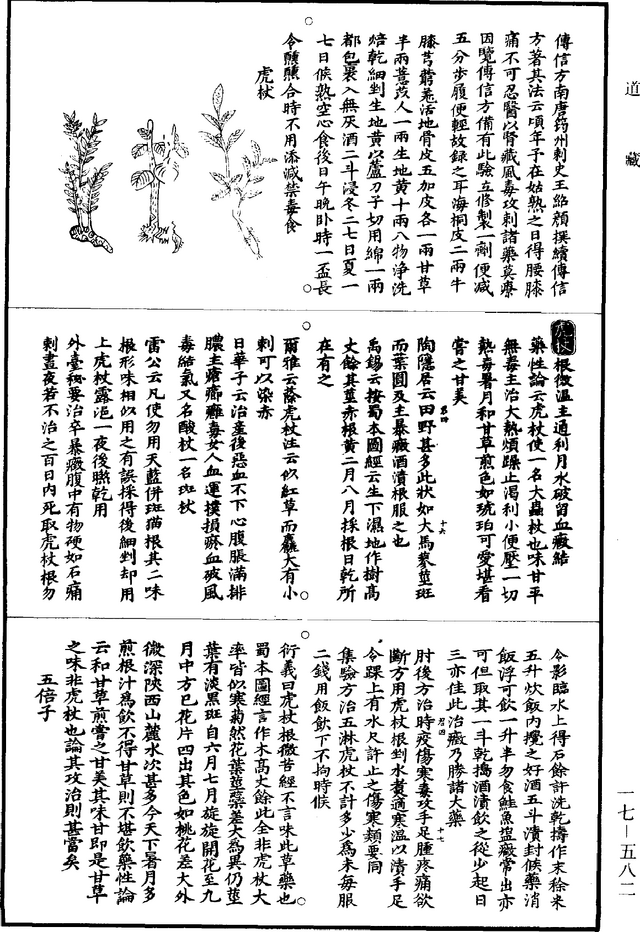 道藏
傳信方南唐筠州刺史王紹顏撰續傳信
方著其法云頃年予在姑熟之日得腰膝
痛不可忍醫以腎藏風毒攻刺諸藥莫療
因覽傳信方備有此驗立修製一劑便減
五分步履便輕故錄之耳海桐皮二兩牛
膝芎藭羌活地骨皮五加皮各一兩甘草
半兩薏苡人一兩生地黃十兩八物淨洗
焙乾細剉生地黃以蘆刀子切用綿一兩
都包裹入無灰酒二斗浸冬二七日夏一
七日候熟空心食後日午晚臥時一盃長
令醺醺合時不用添減禁毒食
虎杖
虎杖根微溫主通利月水破留血癥結
藥性論云虎杖使一名大蟲杖也味甘平
無毒主治大熱煩躁止渴利小便壓一切
熱毒暑月和甘草煎色如琥珀可愛堪看
嘗之甘美
陶隱居云田野甚多此狀如大馬蓼莖班
而葉圓及主暴癥酒漬根服之也
禹錫云按蜀本圖經云生下濕地作樹高
丈餘其莖赤根黃二月八月採根日乾所
在有之
爾雅云蒤虎杖注云似紅草而麤大有小
刺可以染赤
日華子云治產後惡血不下心腹脹滿排
膿主瘡癤癰毒女人血運撲損瘀血破風
毒結氣又名酸杖一名班杖
雷公云凡使勿用天藍併斑猫根其二味
根形味相似用之有誤採得後細剉却用
上虎杖露浥一夜後㬠乾用
外臺秘要治卒暴癥腹中有物硬如石痛
刺晝夜若不治之百日內死取虎杖根勿
令影臨水上得石餘許洗乾擣作末秫米
五升炊飯內攪之好酒五斗漬封候藥消
飯浮可飲一升半勿食鮭魚塩癥當出亦
可但取其一斗乾擣酒漬飲之從少起日
三亦佳此治癥乃勝諸大藥
肘後方治時疫傷寒毒攻手足腫疼痛欲
斷方用虎杖根剉水煑適寒溫以漬手足
令踝上有水尺許止之傷寒類要同
集驗方治五淋虎杖不計多少爲末每服
二錢用飯飲下不拘時候
衍義曰虎杖根微苦經不言味此草藥也
蜀本圖經言作木高丈餘此全非虎杖大
率皆似寒菊然花葉莖蘂差大爲異仍莖
葉有淡黑斑自六月七月旋旋開花至九
月中方已花片四出其色如桃花差大外
微深陝西山麓水次甚多今天下暑月多
煎根汁爲飲不得甘草則不堪飲藥性論
云和甘草煎嘗之甘美其味甘即是甘草
之味非虎杖也論其攻治則甚當矣
五倍子
一七—五八二